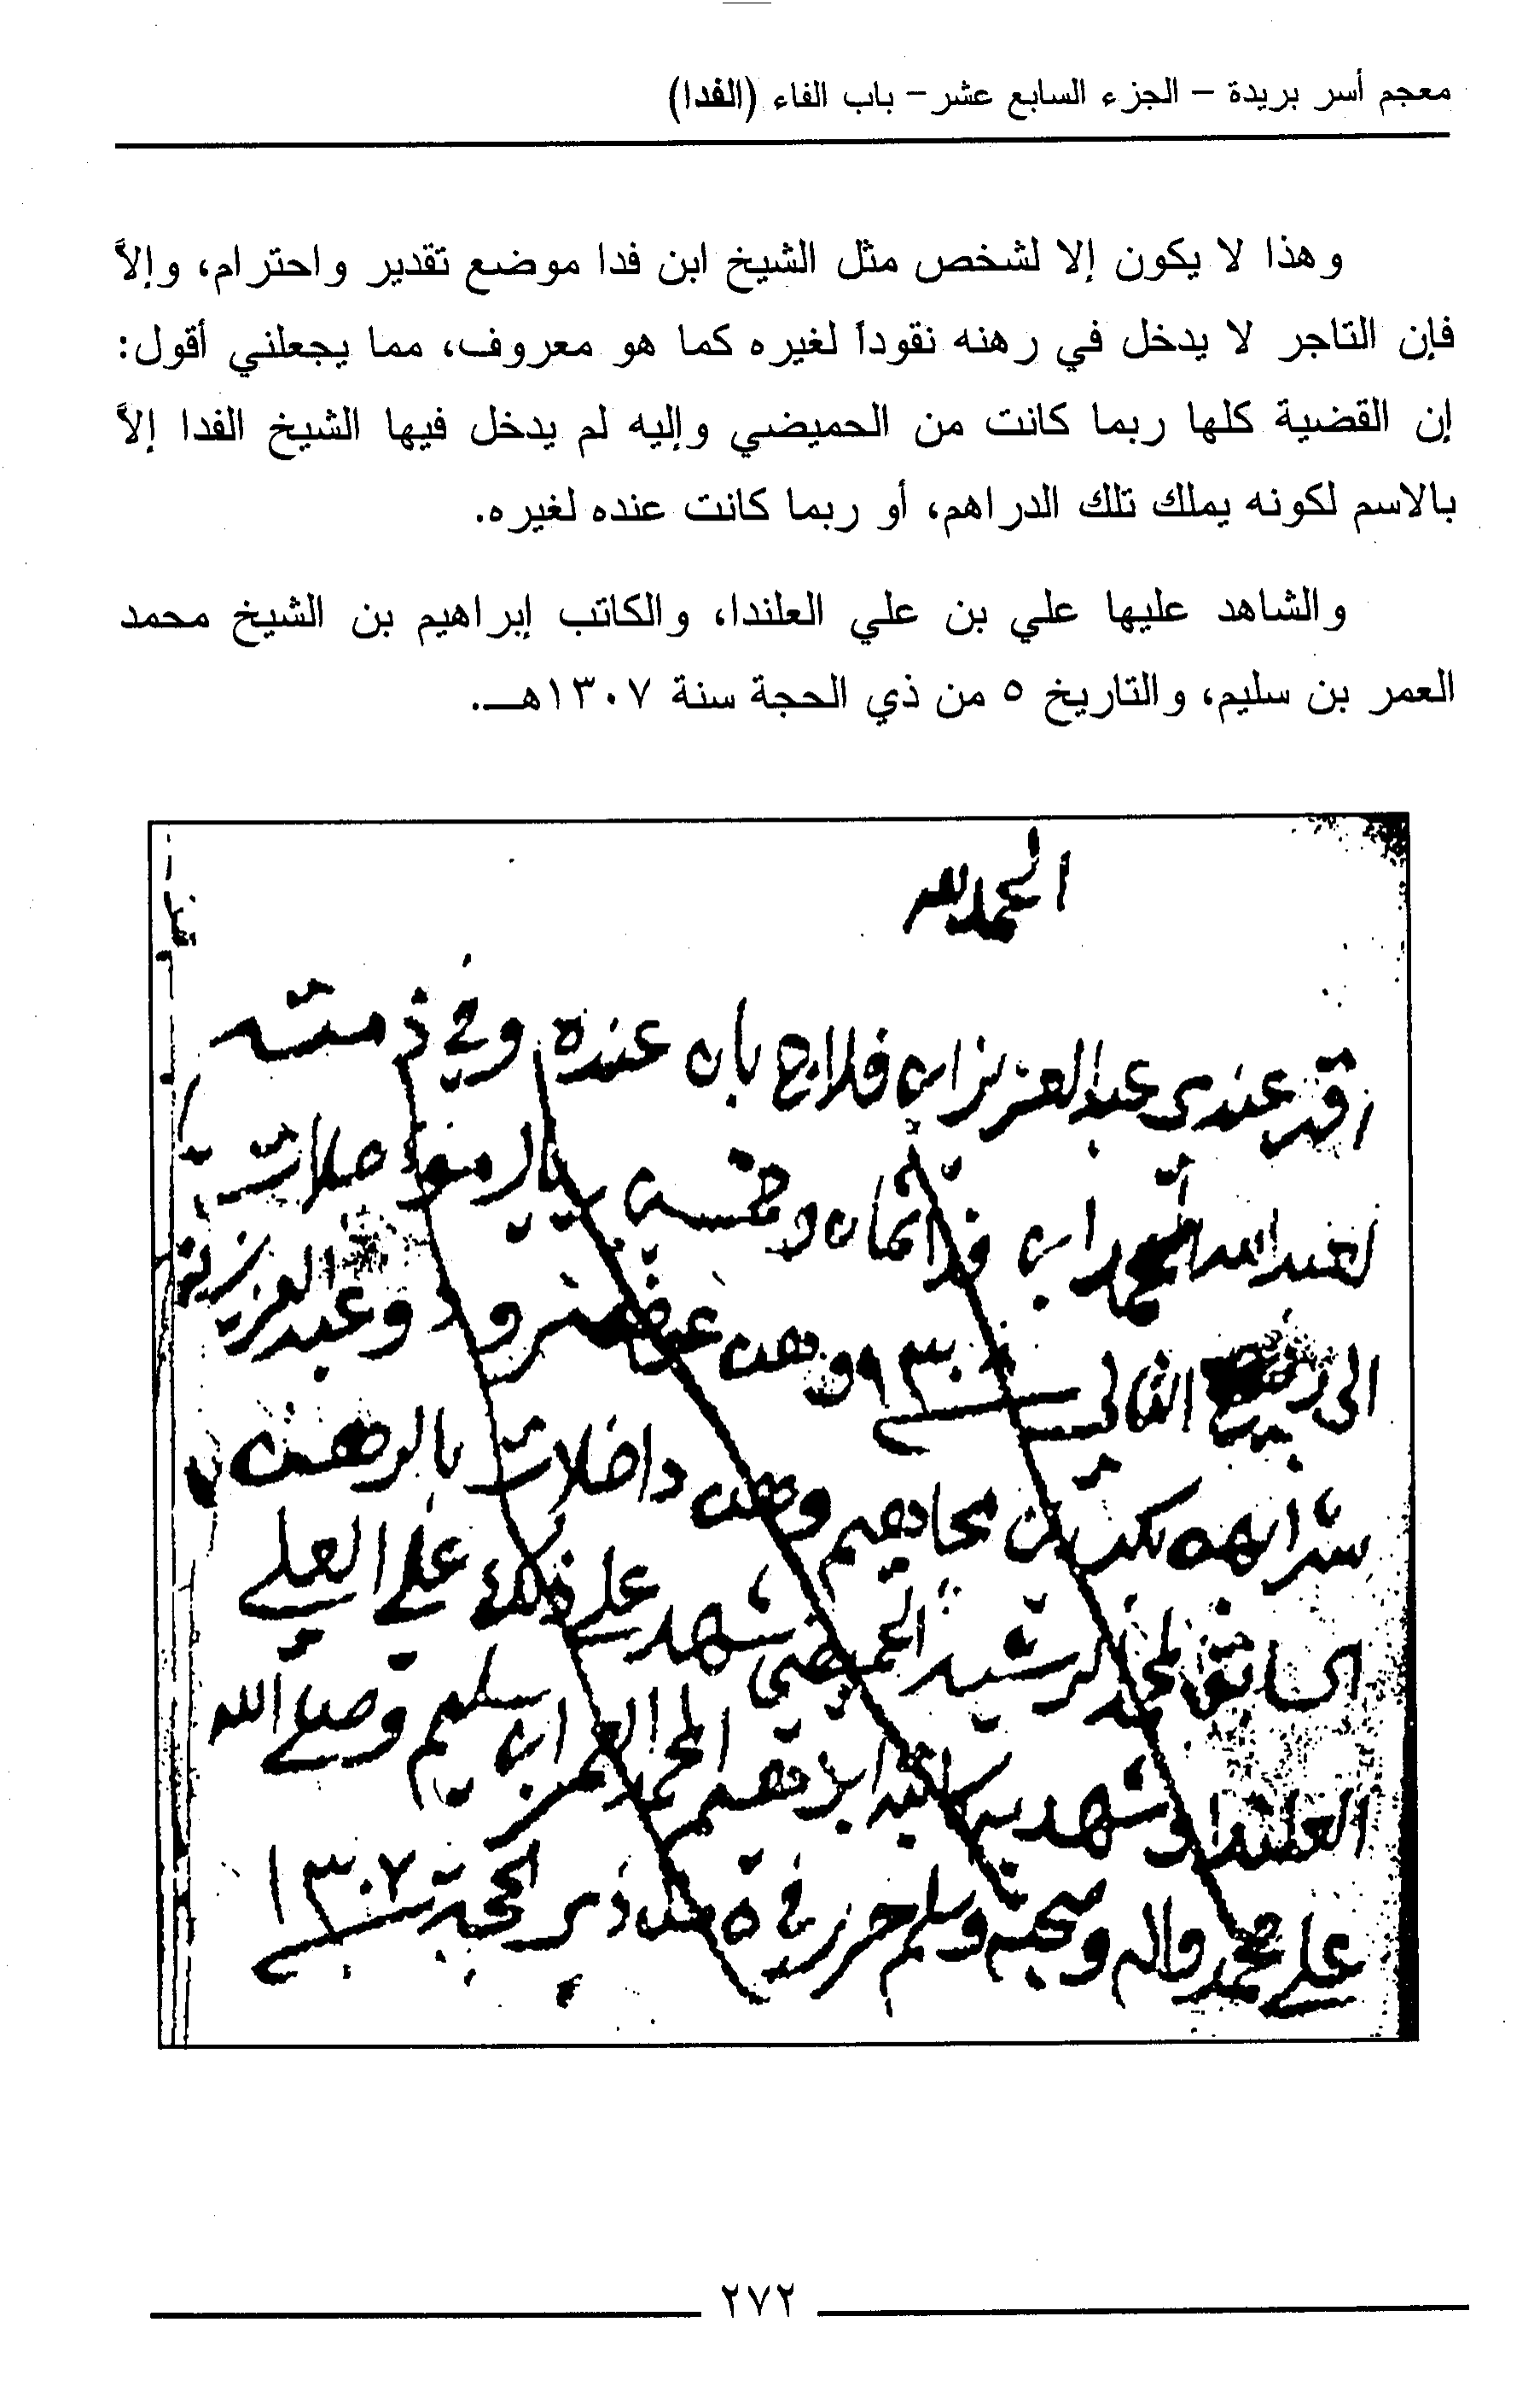 معجم أسر بريدة – الجزء السابع عشر – باب الفاء (الفدا)
وهذا لا يكون إلا لشخص مثل الشيخ ابن فدا موضع تقدير واحترام، وإلاَّ
فإن التاجر لا يدخل في رهنه نقوداً لغيره كما هو معروف، مما يجعلني أقول:
إن القضية كلها ربما كانت من الحميضي وإليه لم يدخل فيها الشيخ الفدا إلاَّ
بالاسم لكونه يملك تلك الدراهم، أو ربما كانت عنده لغيره.
والشاهد عليها علي بن علي العلندا، والكاتب إبراهيم بن الشيخ محمد
العمر بن سليم، والتاريخ ٥ من ذي الحجة سنة ١٣٠٧هـ.
الحمد لله
اقر عندي عبدالعزيز ابن فلاج بان عنده وفي ذمته
لعبدالله المحمد ابن فدا ثمان وخمسين ريال
الى ربيع الثاني ١٣٠٩ وهن عوض وعبدالعزيز
وهن داخلات بالرهن
السابق لمحمد الرشيد الحميضي شهد على ذلك علي العلي
العلندا وشهد به كاتبه ابراهيم المحمد العمر ابن سليم وصلى الله
على محمد واله وصحبه وسلم حرر في ٥ من ذي الحجة ١٣٠٧
٢٧٢